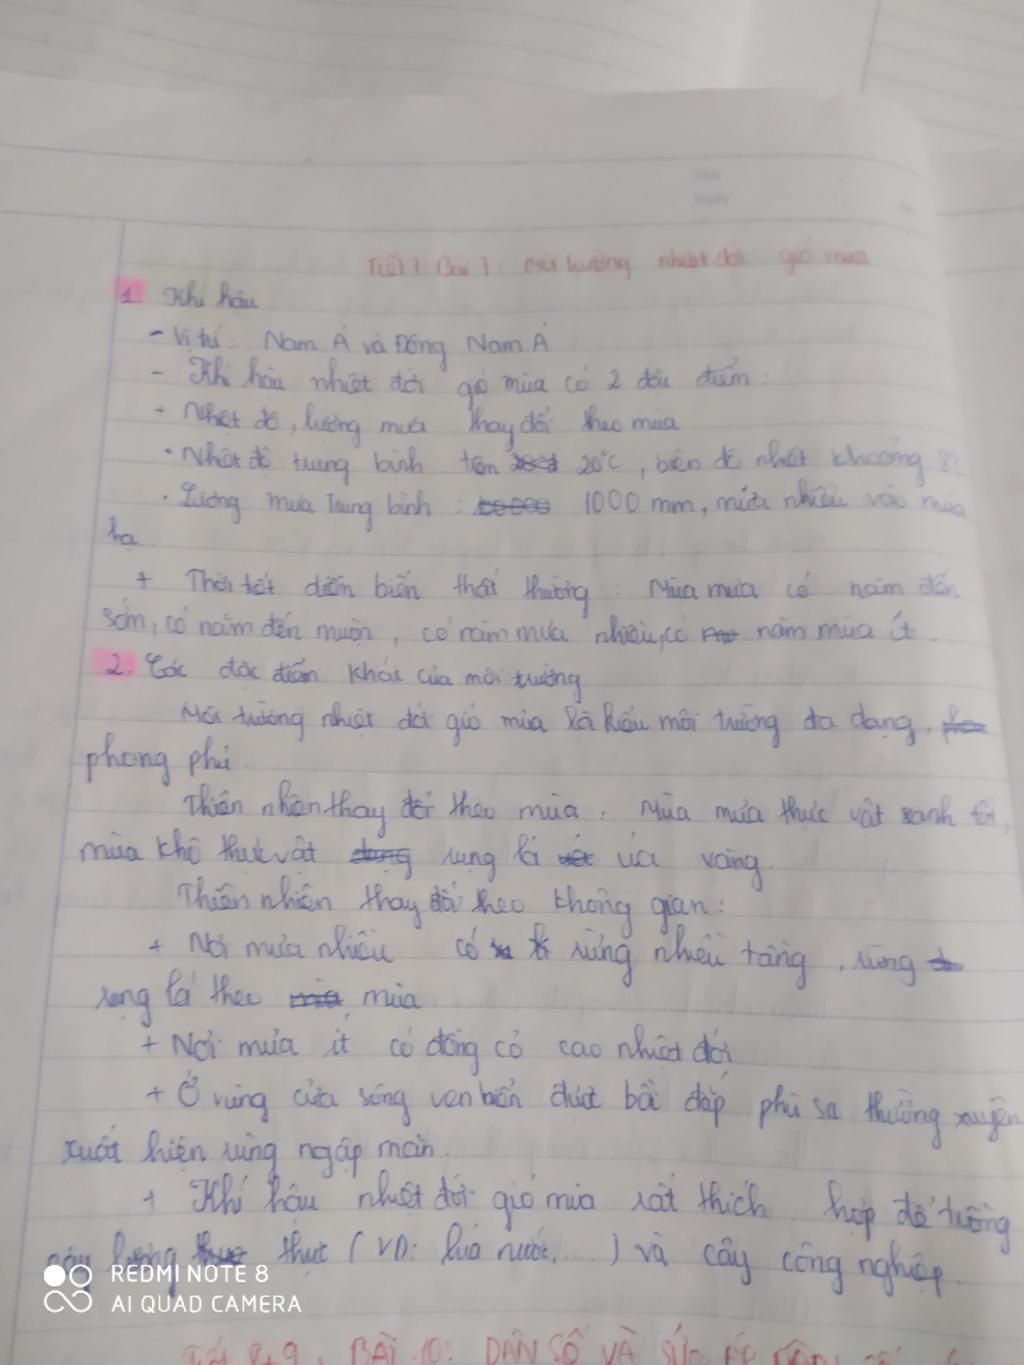 Tiết 7 Bài 7: Môi trường nhiệt đới gió mùa
1. Khí hậu
- Vị trí: Nam Á và Đông Nam Á
- Khí hậu nhiệt đới gió mùa có 2 đặc điểm:
+ Nhiệt độ, lượng mưa thay đổi theo mùa
• Nhiệt độ trung bình trên 20°C, biên độ nhiệt khoảng 8°C
• Lượng mưa trung bình: 1000 mm, mưa nhiều vào mùa
hạ
+ Thời tiết diễn biến thất thường: Mùa mưa có năm đến
sớm, có năm đến muộn, có năm mưa nhiều, có năm mưa ít
2. Các đặc điểm khác của môi trường
Môi trường nhiệt đới gió mùa là kiểu môi trường đa dạng,
phong phú
Thiên nhiên thay đổi theo mùa. Mùa mưa thực vật xanh tốt,
mùa khô thực vật rụng lá úa vàng.
Thiên nhiên thay đổi theo không gian:
+ Nơi mưa nhiều có rừng nhiều tầng, rừng
rụng lá theo mùa
+ Nơi mưa ít có đồng cỏ cao nhiệt đới
+ Ở vùng cửa sông ven biển được bồi đắp phù sa thường xuyên
xuất hiện rừng ngập mặn.
+ Khí hậu nhiệt đới gió mùa rất thích hợp để trồng
cây lương thực (VD: lúa nước,...) và cây công nghiệp.
REDMI NOTE 8
AI QUAD CAMERA
Tiết 8+9, BÀI 10: DÂN SỐ VÀ SỨC ÉP DÂN